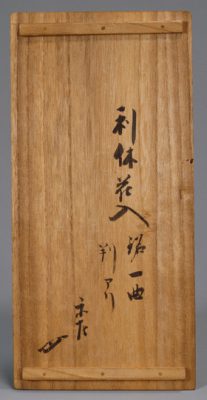 利休花入 銘 一曲
判アリ
宗左